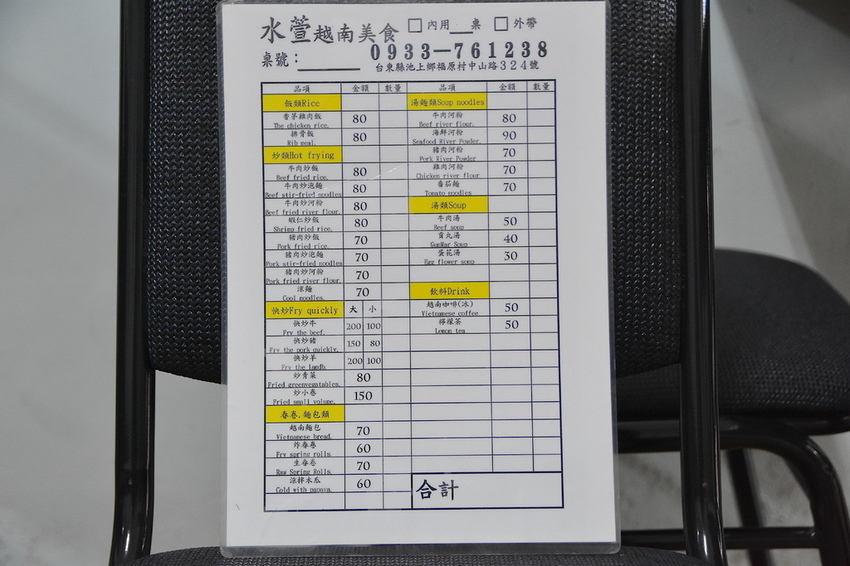 水萱越南美食 □內用__桌 □外帶
桌號：______ 0933—761238
台東縣池上鄉福原村中山路324號
品項 金額 數量 品項 金額 數量
飯類Rice
香茅雞肉飯 80
The chicken rice.
排骨飯 80
Rib meal.
炒類Hot frying
牛肉炒飯 80
Beef fried rice.
牛肉炒泡麵 80
Beef stir-fried noodles
牛肉炒河粉 80
Beef fried river flour.
蝦仁炒飯 80
Shrimp fried rice.
豬肉炒飯 70
Pork fried rice.
豬肉炒泡麵 70
Pork stir-fried noodles
豬肉炒河粉 70
Pork fried river flour.
涼麵 70
Cool noodles.
快炒Fry quickly 大 小
快炒牛 200 100
Fry the beef.
快炒豬 150 80
Fry the pork quickly.
快炒羊 200 100
Fry the lamdb.
炒青菜 80
Fried greenvegatables.
炒小卷 150
Fried small volume.
春卷.麵包類
越南麵包 70
Vietnamese bread.
炸春卷 60
Fry spring rolls.
生春卷 70
Raw Spring Rolls.
涼拌木瓜 60
Cold with papaya.
湯麵類Soup noodles
牛肉河粉 80
Beef river flour.
海鮮河粉 90
Seafood River Powder.
豬肉河粉 70
Pork River Powder
雞肉河粉 70
Chicken river flour
番茄麵 70
Tomato noodles
湯類Soup
牛肉湯 50
Beef soup
貢丸湯 40
GonWar Soup
蛋花湯 30
Egg flower soup
飲料Drink
越南咖啡(冰) 50
Vietnamese coffee
檸檬茶 50
Lemon tea
合計